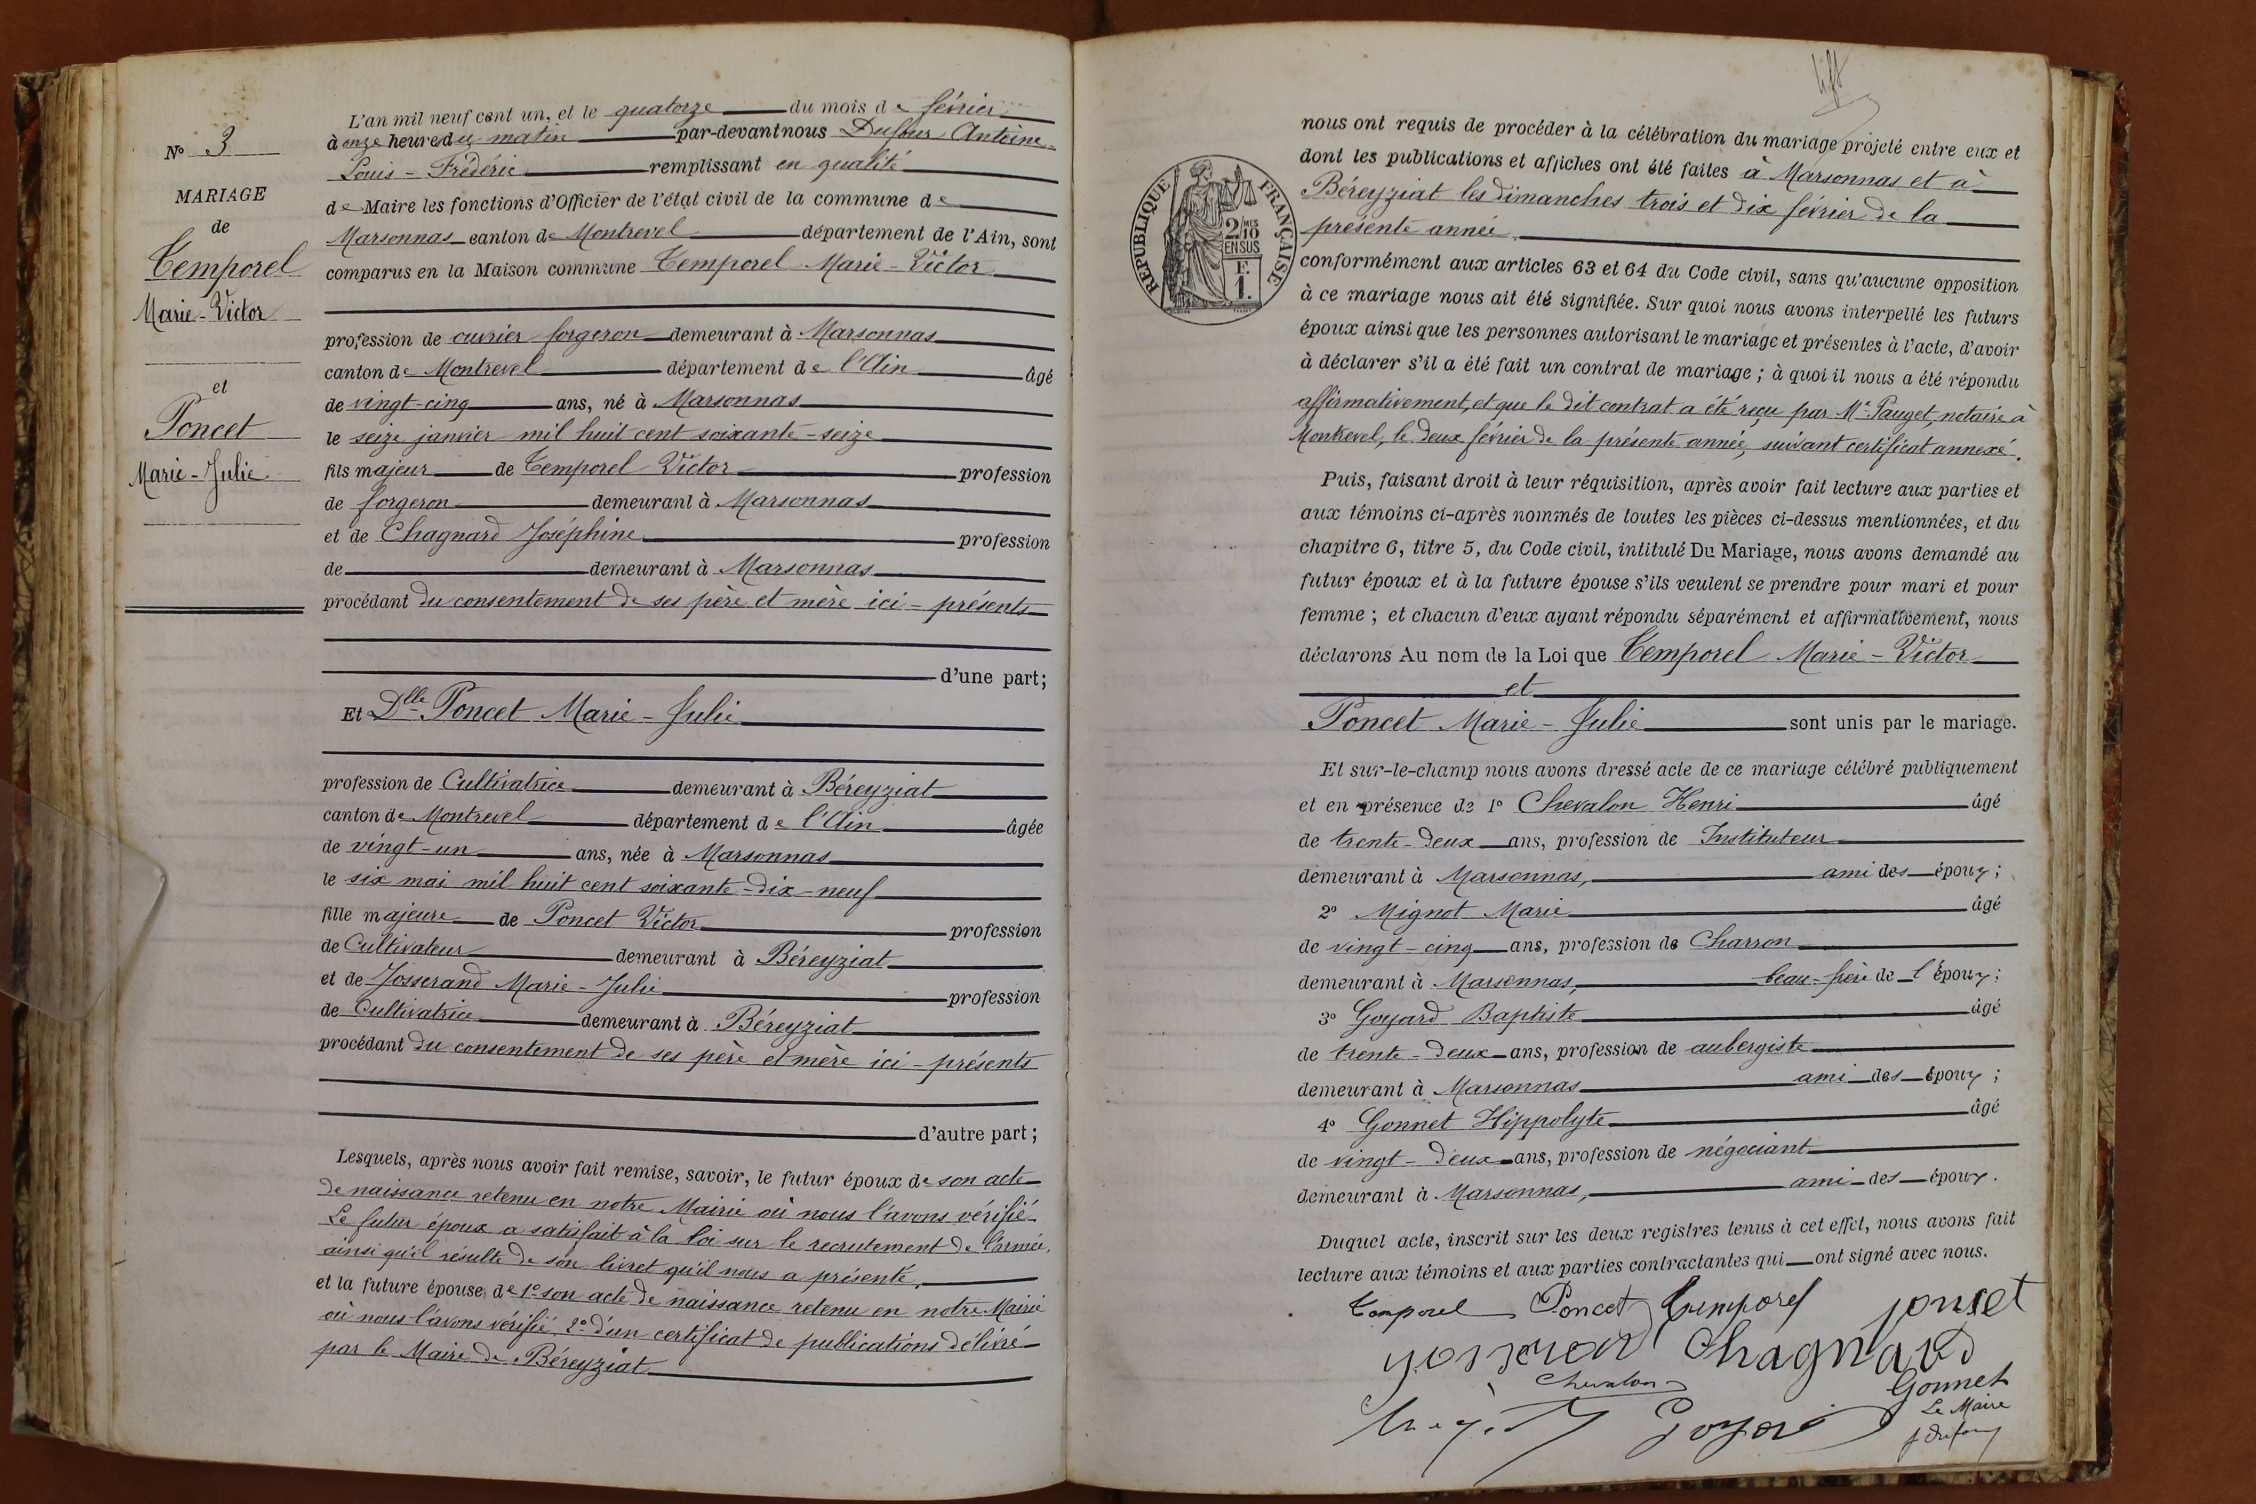 L'an mil neuf cent un, et le quatorze du mois de février
à onze heures du matin par-devant nous Dufour Antoine
Louis-Frédéric remplissant en qualité
de Maire les fonctions d'Officier de l'état civil de la commune de
Marsonnas canton de Montrevel département de l'Ain, sont
comparus en la Maison commune Temporel Marie-Victor
profession de ouvrier forgeron demeurant à Marsonnas
canton de Montrevel département de l'Ain âgé
de vingt-cinq ans, né à Marsonnas
le seize janvier mil huit cent soixante-seize
fils majeur de Temporel Victor profession
de forgeron demeurant à Marsonnas
et de Chagnard Joséphine profession
de demeurant à Marsonnas
procédant du consentement de ses père et mère ici-présents
d'une part;
Et Dlle Poncet Marie-Julie
profession de Cultivatrice demeurant à Béreyziat
canton de Montrevel département de l'Ain âgée
de vingt-un ans, née à Marsonnas
le six mai mil huit cent soixante-dix-neuf
fille majeure de Poncet Victor profession
de Cultivateur demeurant à Béreyziat
et de Josserand Marie-Julie profession
de Cultivatrice demeurant à Béreyziat
procédant du consentement de ses père et mère ici-présents
d'autre part;
Lesquels, après nous avoir fait remise, savoir, le futur époux de son acte
de naissance retenu en notre Mairie où nous l'avons vérifié
Le futur époux a satisfait à la loi sur le recrutement de l'armée,
ainsi qu'il résulte de son livret qu'il nous a présenté,
et la future épouse, de 1° son acte de naissance retenu en notre Mairie
où nous l'avons vérifié 2° d'un certificat de publications délivré
par le Maire de Béreyziat
N° 3
MARIAGE
de
Temporel
Marie-Victor
et
Poncet
Marie-Julie
RÉPUBLIQUE FRANÇAISE
2/10 MES
EN SUS
F.
1.
nous ont requis de procéder à la célébration du mariage projeté entre eux et
dont les publications et affiches ont été faites à Marsonnas et à
Béreyziat les dimanches trois et dix février de la
présente année,
conformément aux articles 63 et 64 du Code civil, sans qu'aucune opposition
à ce mariage nous ait été signifiée. Sur quoi nous avons interpellé les futurs
époux ainsi que les personnes autorisant le mariage et présentes à l'acte, d'avoir
à déclarer s'il a été fait un contrat de mariage; à quoi il nous a été répondu
affirmativement, et que le dit contrat a été reçu par Me Pauget, notaire à
Montrevel, le deux février de la présente année, suivant certificat annexé.
Puis, faisant droit à leur réquisition, après avoir fait lecture aux parties et
aux témoins ci-après nommés de toutes les pièces ci-dessus mentionnées, et du
chapitre 6, titre 5, du Code civil, intitulé Du Mariage, nous avons demandé au
futur époux et à la future épouse s'ils veulent se prendre pour mari et pour
femme; et chacun d'eux ayant répondu séparément et affirmativement, nous
déclarons Au nom de la Loi que Temporel Marie-Victor
et
Poncet Marie-Julie sont unis par le mariage.
Et sur-le-champ nous avons dressé acte de ce mariage célébré publiquement
et en présence de 1° Chevalon Henri âgé
de trente-deux ans, profession de Instituteur
demeurant à Marsonnas, ami des époux;
2° Mignot Marie âgé
de vingt-cinq ans, profession de Charron
demeurant à Marsonnas, beau-frère de l'époux;
3° Goyard Baptiste âgé
de trente-deux ans, profession de aubergiste
demeurant à Marsonnas ami des époux;
4° Gonnet Hippolyte âgé
de vingt-deux ans, profession de négociant
demeurant à Marsonnas, ami des époux.
Duquel acte, inscrit sur les deux registres tenus à cet effet, nous avons fait
lecture aux témoins et aux parties contractantes qui ont signé avec nous.
Temporel Poncet Temporel poncet
Chagnard
Chevalon Gonnet
Le Maire
Goyard